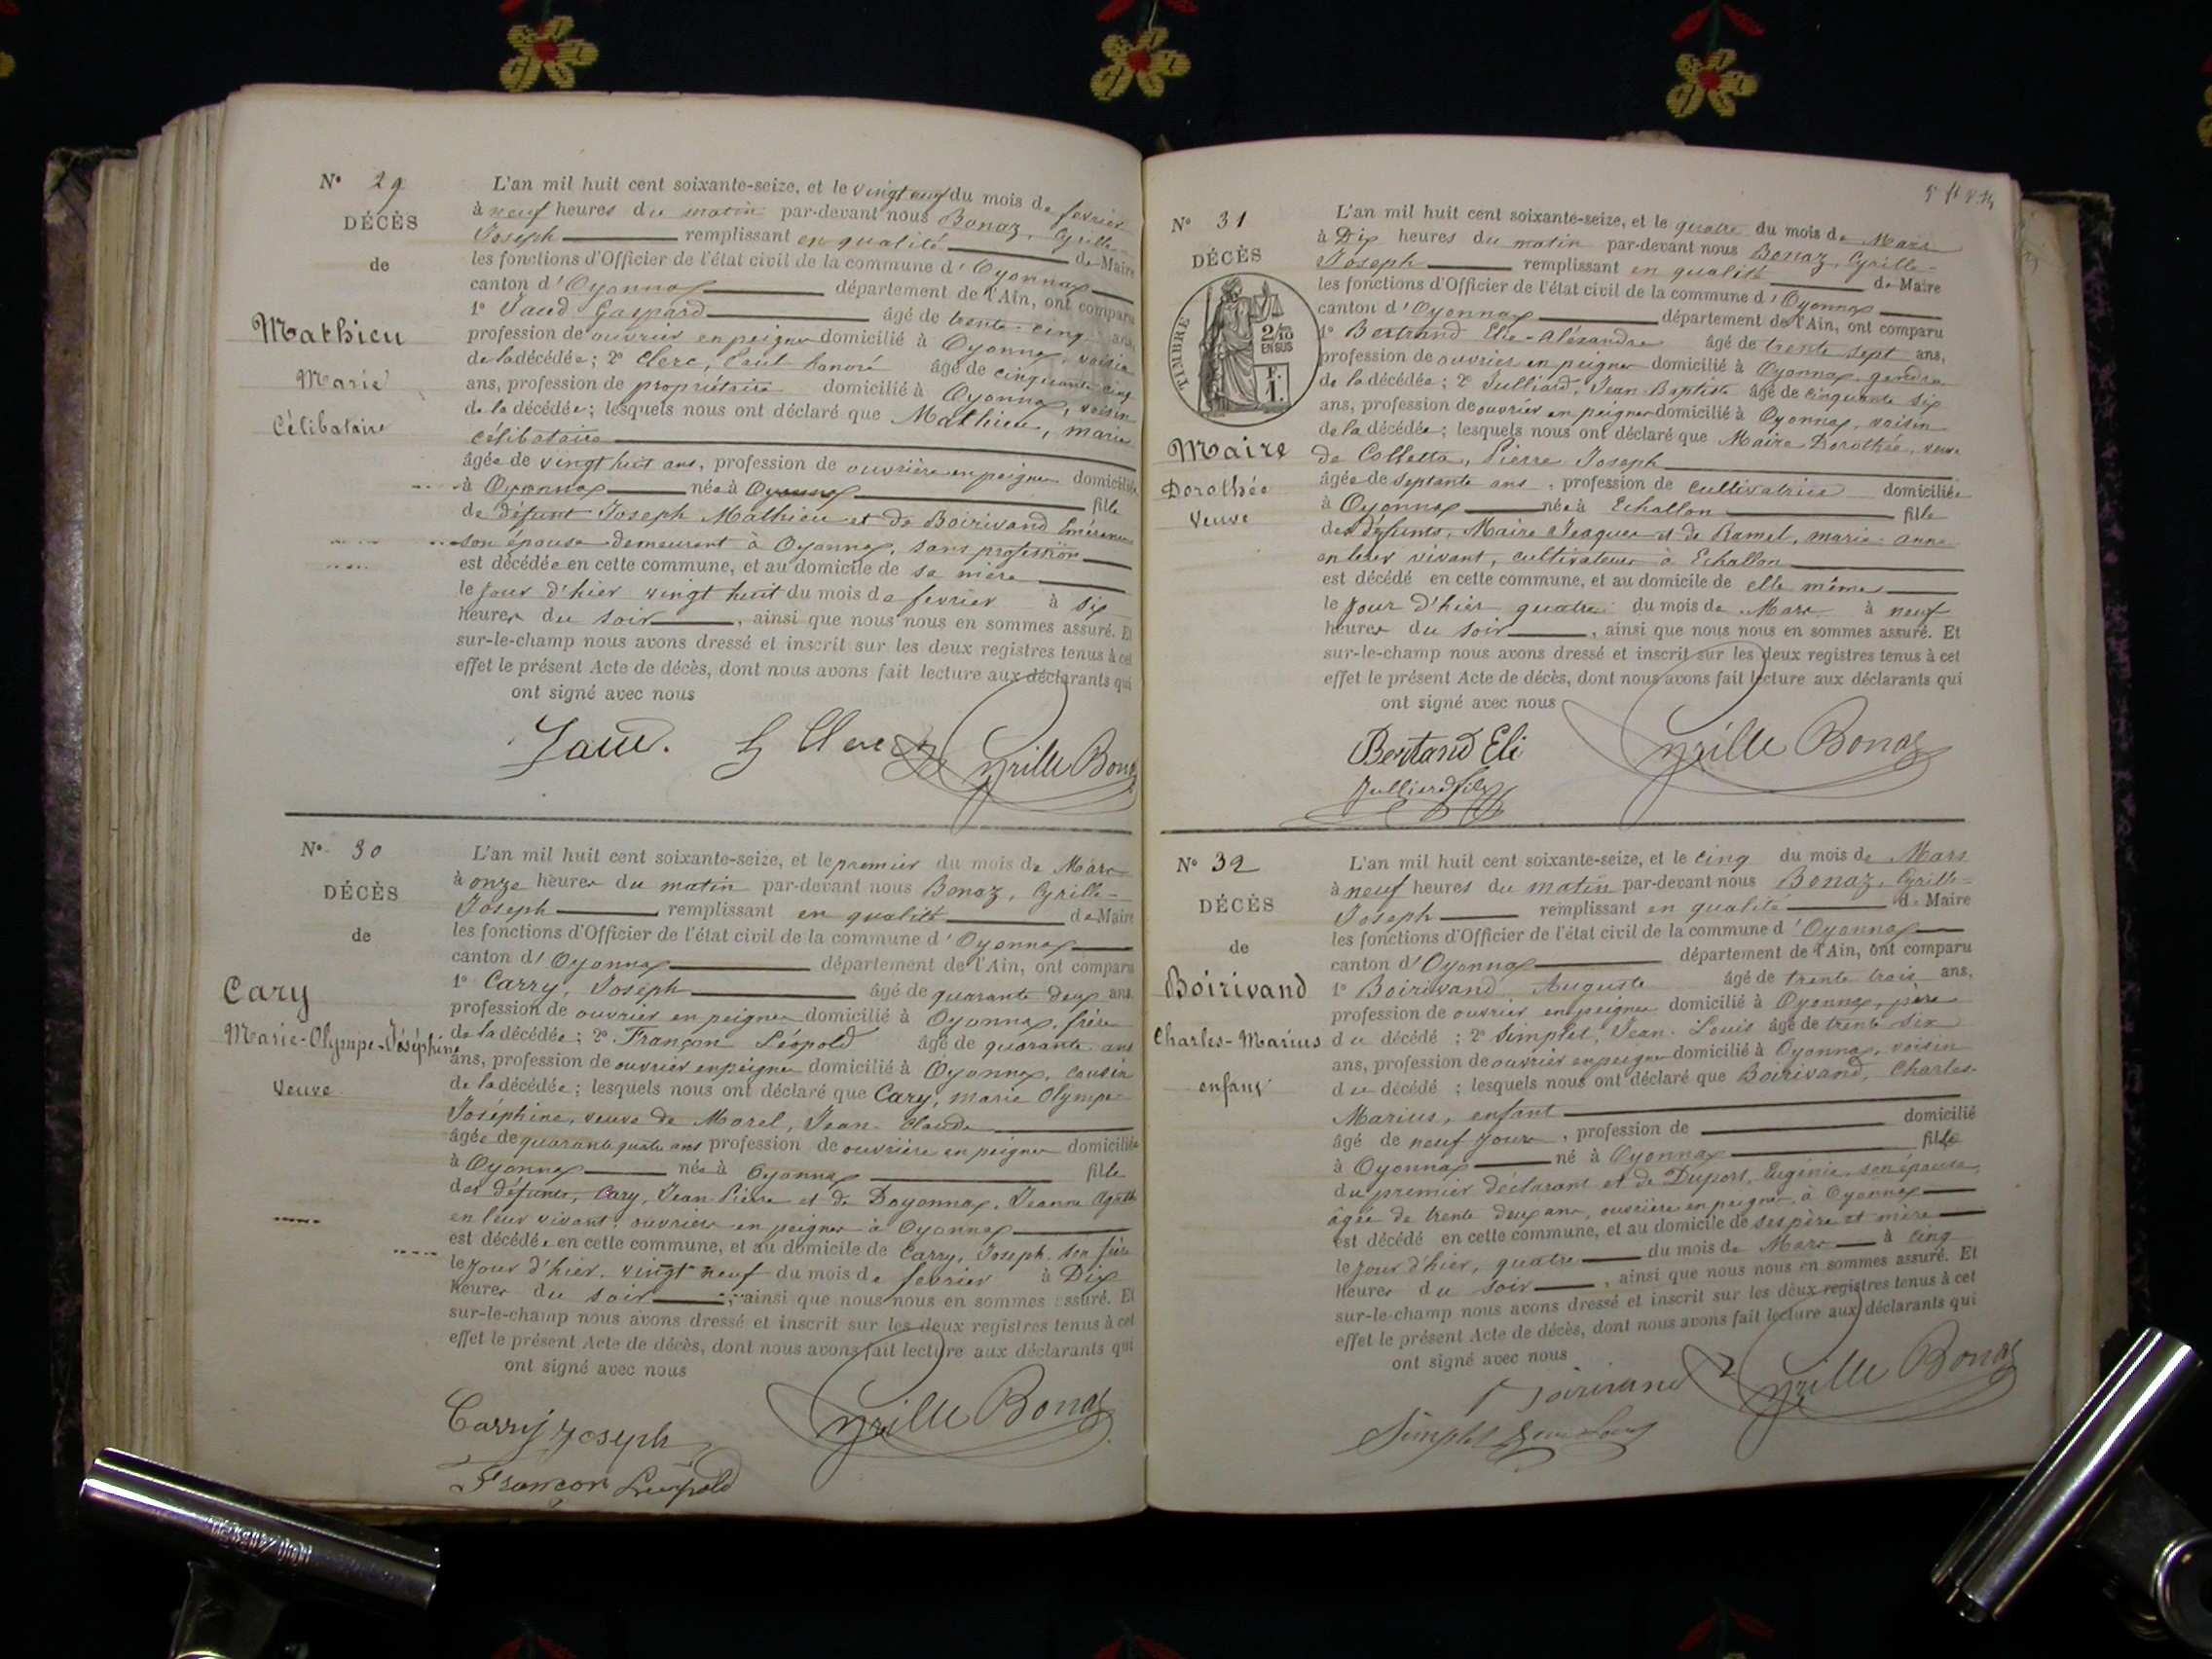 N° 29
DÉCÈS
de
Mathieu
Marie
Célibataire
L'an mil huit cent soixante-seize, et le vingt neuf du mois de fevrier
à neuf heures du matin par-devant nous Bonaz, Cyrille-
Joseph remplissant en qualité de Maire
les fonctions d'Officier de l'état civil de la commune d'Oyonnax
canton d'Oyonnax département de l'Ain, ont comparu
1° Vaud Gaspard âgé de trente-cinq ans,
profession de ouvrier en peignes domicilié à Oyonnax, voisin
de la décédée; 2° Clerc, honoré âgé de cinquante cinq
ans, profession de propriétaire domicilié à Oyonnax, voisin
de la décédée; lesquels nous ont déclaré que Mathieu, marie
célibataire
âgée de vingt huit ans, profession de ouvrière en peignes domiciliée
à Oyonnax née à Oyonnax fille
de défunt Joseph Mathieu et de Boirivand
son épouse demeurant à Oyonnax, sans profession
est décédée en cette commune, et au domicile de sa mère
le jour d'hier vingt huit du mois de fevrier à six
heures du soir, ainsi que nous nous en sommes assuré. Et
sur-le-champ nous avons dressé et inscrit sur les deux registres tenus à cet
effet le présent Acte de décès, dont nous avons fait lecture aux déclarants qui
ont signé avec nous
Vaud. Clerc Cyrille Bonaz
N° 30
DÉCÈS
de
Cary
Marie-Olympe-Joséphine
Veuve
L'an mil huit cent soixante-seize, et le premier du mois de Mars
à onze heures du matin par-devant nous Bonaz, Cyrille-
Joseph remplissant en qualité de Maire
les fonctions d'Officier de l'état civil de la commune d'Oyonnax
canton d'Oyonnax département de l'Ain, ont comparu
1° Carry, Joseph âgé de quarante deux ans
profession de ouvrier en peignes domicilié à Oyonnax, frère
de la décédée; 2° Françon Léopold âgé de quarante ans
ans, profession de ouvrier en peignes domicilié à Oyonnax, cousin
de la décédée; lesquels nous ont déclaré que Cary, marie Olympe
Joséphine, veuve de Morel, Jean-Claude
âgée de quarante quatre ans profession de ouvrière en peignes domiciliée
à Oyonnax née à Oyonnax fille
des défunts, Cary, Jean-Pierre et de Doyonnax, Jeanne Agathe
en leur vivant, ouvriers en peignes à Oyonnax
est décédée en cette commune, et au domicile de Carry, Joseph. son frère
le jour d'hier, vingt neuf du mois de fevrier à Dix
heures du soir, ainsi que nous nous en sommes assuré. Et
sur-le-champ nous avons dressé et inscrit sur les deux registres tenus à cet
effet le présent Acte de décès, dont nous avons fait lecture aux déclarants qui
ont signé avec nous
Carry Joseph Cyrille Bonaz
Françon Léopold
N° 31
DÉCÈS
TIMBRE
2/10
EN SUS
F.
1.
Maire
Dorothée
Veuve
L'an mil huit cent soixante-seize, et le quatre du mois de Mars
à Dix heures du matin par-devant nous Bonaz, Cyrille-
Joseph remplissant en qualité de Maire
les fonctions d'Officier de l'état civil de la commune d'Oyonnax
canton d'Oyonnax département de l'Ain, ont comparu
1° Bertrand Elie-Aléxandre âgé de trente sept ans,
profession de ouvrier en peignes domicilié à Oyonnax, gendre
de la décédée; 2° Julliard, Jean-Baptiste âgé de cinquante six
ans, profession de ouvrier en peignes domicilié à Oyonnax, voisin
de la décédée; lesquels nous ont déclaré que Maire Dorothée, veuve
de Colletta, Pierre Joseph
âgée de septante ans, profession de cultivatrice domiciliée
à Oyonnax née à Echallon fille
des défunts, Maire Jacques et de Ramel, marie-anne
en leur vivant, cultivateurs à Echallon
est décédé en cette commune, et au domicile de elle même
le jour d'hier quatre du mois de Mars à neuf
heures du soir, ainsi que nous nous en sommes assuré. Et
sur-le-champ nous avons dressé et inscrit sur les deux registres tenus à cet
effet le présent Acte de décès, dont nous avons fait lecture aux déclarants qui
ont signé avec nous
Bertrand Eli Cyrille Bonaz
Julliard fils
N° 32
DÉCÈS
de
Boirivand
Charles-Marius
enfant
L'an mil huit cent soixante-seize, et le cinq du mois de Mars
à neuf heures du matin par-devant nous Bonaz, Cyrille-
Joseph remplissant en qualité de Maire
les fonctions d'Officier de l'état civil de la commune d'Oyonnax
canton d'Oyonnax département de l'Ain, ont comparu
1° Boirivand Auguste âgé de trente trois ans,
profession de ouvrier en peignes domicilié à Oyonnax, père
du décédé; 2° Simplet, Jean-Louis âgé de trente six
ans, profession de ouvrier en peignes domicilié à Oyonnax, voisin
du décédé; lesquels nous ont déclaré que Boirivand, Charles-
Marius, enfant
âgé de neuf jours, profession de domicilié
à Oyonnax né à Oyonnax fils
du premier déclarant et de Duport, Eugénie, son épouse,
âgée de trente deux ans, ouvrière en peignes, à Oyonnax
est décédé en cette commune, et au domicile de ses père et mère
le jour d'hier, quatre du mois de Mars à cinq
heures du soir, ainsi que nous nous en sommes assuré. Et
sur-le-champ nous avons dressé et inscrit sur les deux registres tenus à cet
effet le présent Acte de décès, dont nous avons fait lecture aux déclarants qui
ont signé avec nous
Boirivand Cyrille Bonaz
Simplet Jean Louis